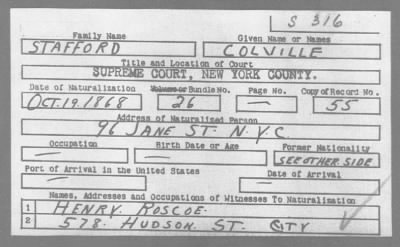 S 316
Family Name Given Name or Names
STAFFORD COLVILLE
Title and Location of Court
SUPREME COURT, NEW YORK COUNTY.
Date of Naturalization Volume or Bundle No. Page No. Copy of Record No.
OCT. 19. 1868 26 — 55
Address of Naturalized Person
96 JANE ST. N.Y.C
Occupation Birth Date or Age Former Nationality
— — SEE OTHER SIDE
Port of Arrival in the United States Date of Arrival
— —
Names, Addresses and Occupations of Witnesses To Naturalization
1 HENRY ROSCOE.
2 578. HUDSON ST. CITY